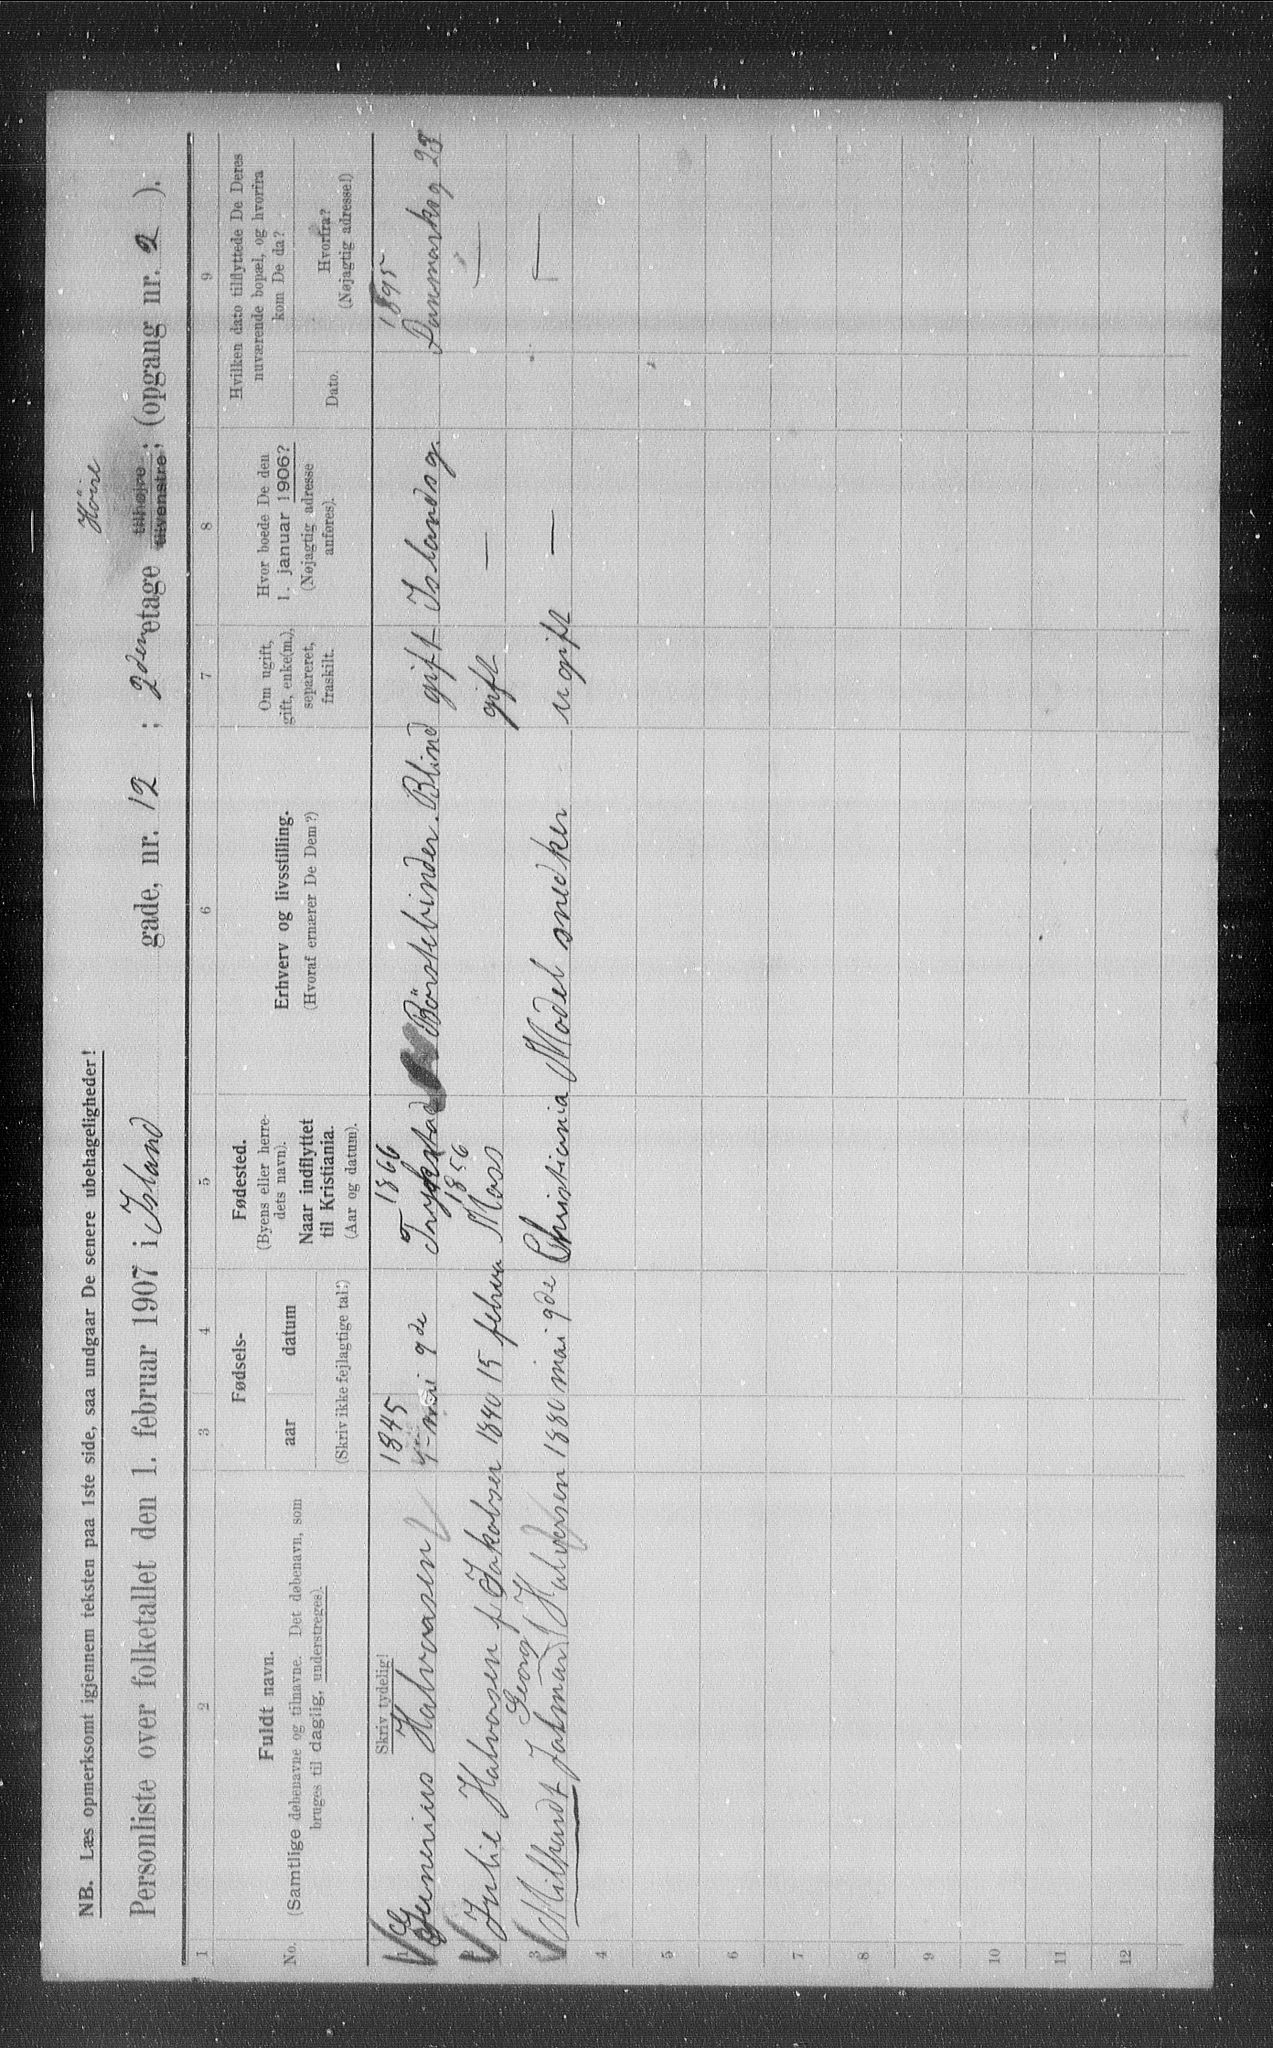 NB. Læs opmerksomt igjennem teksten paa 1ste side, saa undgaar De senere ubehageligheder!
Høire
Personliste over folketallet den 1. februar 1907 i Island gade, nr. 12 ; 2den etage tilhøjre tilvenstre ; (opgang nr. 2 ).
1 2 3 4 5 6 7 8 9
No.
Fuldt navn.
(Samtlige døbenavne og tilnavne. Det døbenavn, som
bruges til daglig, understreges).
Fødsels-
aar datum
(Skriv ikke fejlagtige tal!)
Fødested.
(Byens eller herre-
dets navn).
Naar indflyttet
til Kristiania.
(Aar og datum).
Erhverv og livsstilling.
(Hvoraf ernærer De Dem?)
Om ugift,
gift, enke(m.),
separeret,
fraskilt.
Hvor boede De den
1. januar 1906?
(Nøjagtig adresse
anføres).
Hvilken dato tilflyttede De Deres
nuværende bopæl, og hvorfra
kom De da?
Dato.
Hvorfra?
(Nøjagtig adresse!)
Skriv tydelig!
1845 1866 1895
1 Halvorsen mai 9de Børstebinder. Blind gift Islandsg. Danmarksg 28
1856
2 Julie Halvorsen f. Jakobsen 1840 15 februa Moss gift — —
Georg
3 Halvorsen 1880 mai 9de Christiania Model snedker ugift — —
4
5
6
7
8
9
10
11
12